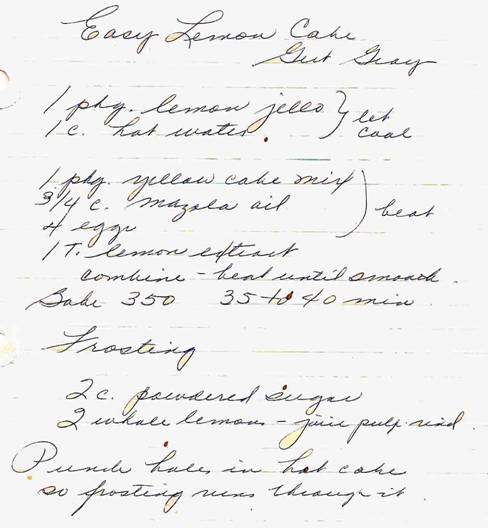 Easy Lemon Cake
Gert Gray
1 pkg. lemon jello } let
1 c. hot water. cool
1 pkg. yellow cake mix
3/4 c. mazola oil } beat
4 eggs
1 T. lemon extract
combine - beat until smooth.
Bake 350 35 to 40 min.
Frosting
2 c. powdered sugar
2 whole lemons - juice pulp rind.
Punch holes in hot cake
so frosting runs through it.